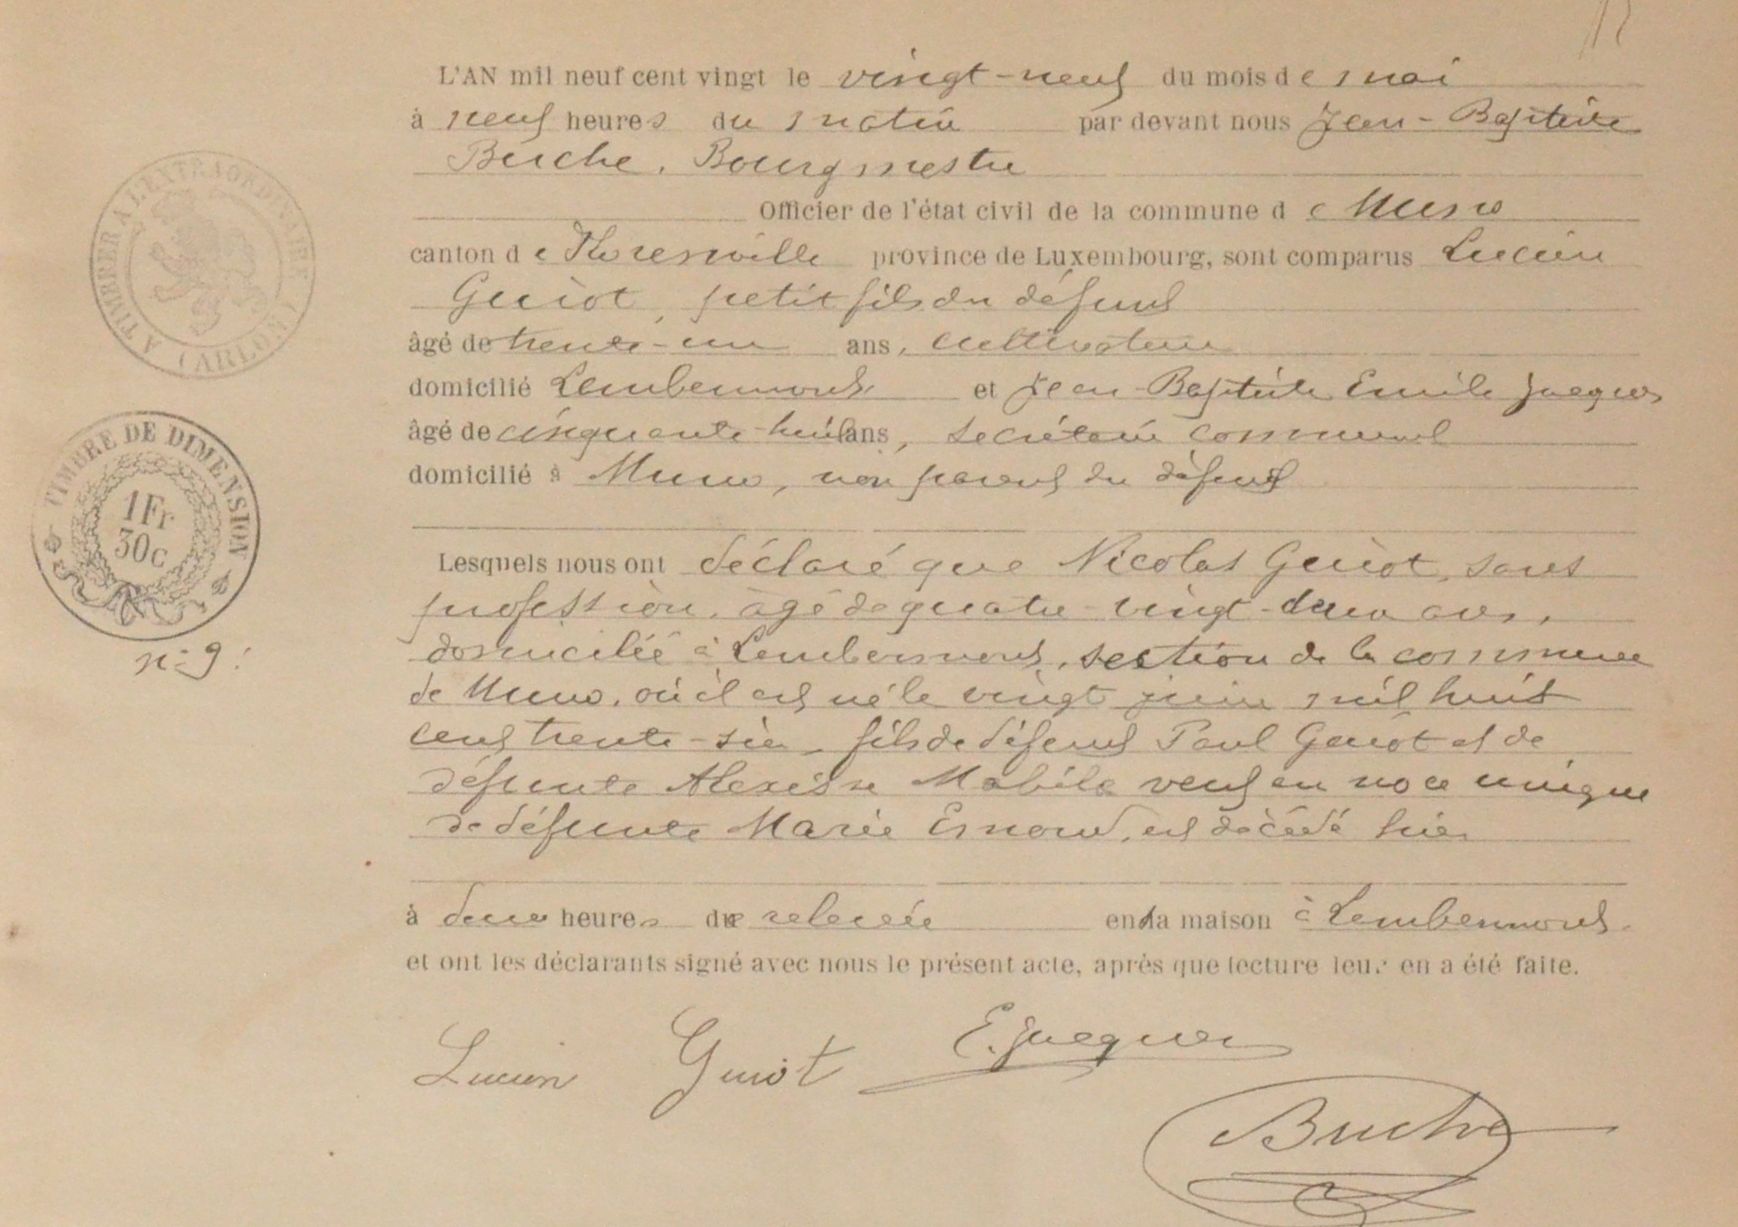 L'AN mil neuf cent vingt le vingt-neuf du mois de mai
à neuf heures du matin par devant nous Jean-Baptiste
Buche, Bourgmestre
Officier de l'état civil de la commune de Muno
canton de Florenville province de Luxembourg, sont comparus Lucien
Guiot, petit fils du défunt
âgé de trente-un ans, cultivateur
domicilié Lambermont et Jean-Baptiste Emile Jacques
âgé de cinquante-huit ans, secrétaire communal
domicilié à Muno, non parent du défunt
Lesquels nous ont déclaré que Nicolas Guiot, sans
profession, âgé de quatre-vingt-deux ans,
domicilié à Lambermont, section de la commune
de Muno, où il est né le vingt juin mil huit
cent trente-six, fils de défunt Paul Guiot et de
défunte Mabile veuf en noce unique
de défunte Marie Emond, est décédé hier
à deux heures de relevée en la maison à Lambermont
et ont les déclarants signé avec nous le présent acte, après que lecture leur en a été faite.
Lucien Guiot E. Jacques
Buche
A TIMBRER A L'EXTRAORDINAIRE (ARLON)
TIMBRE DE DIMENSION
1Fr
30c
n° 9.